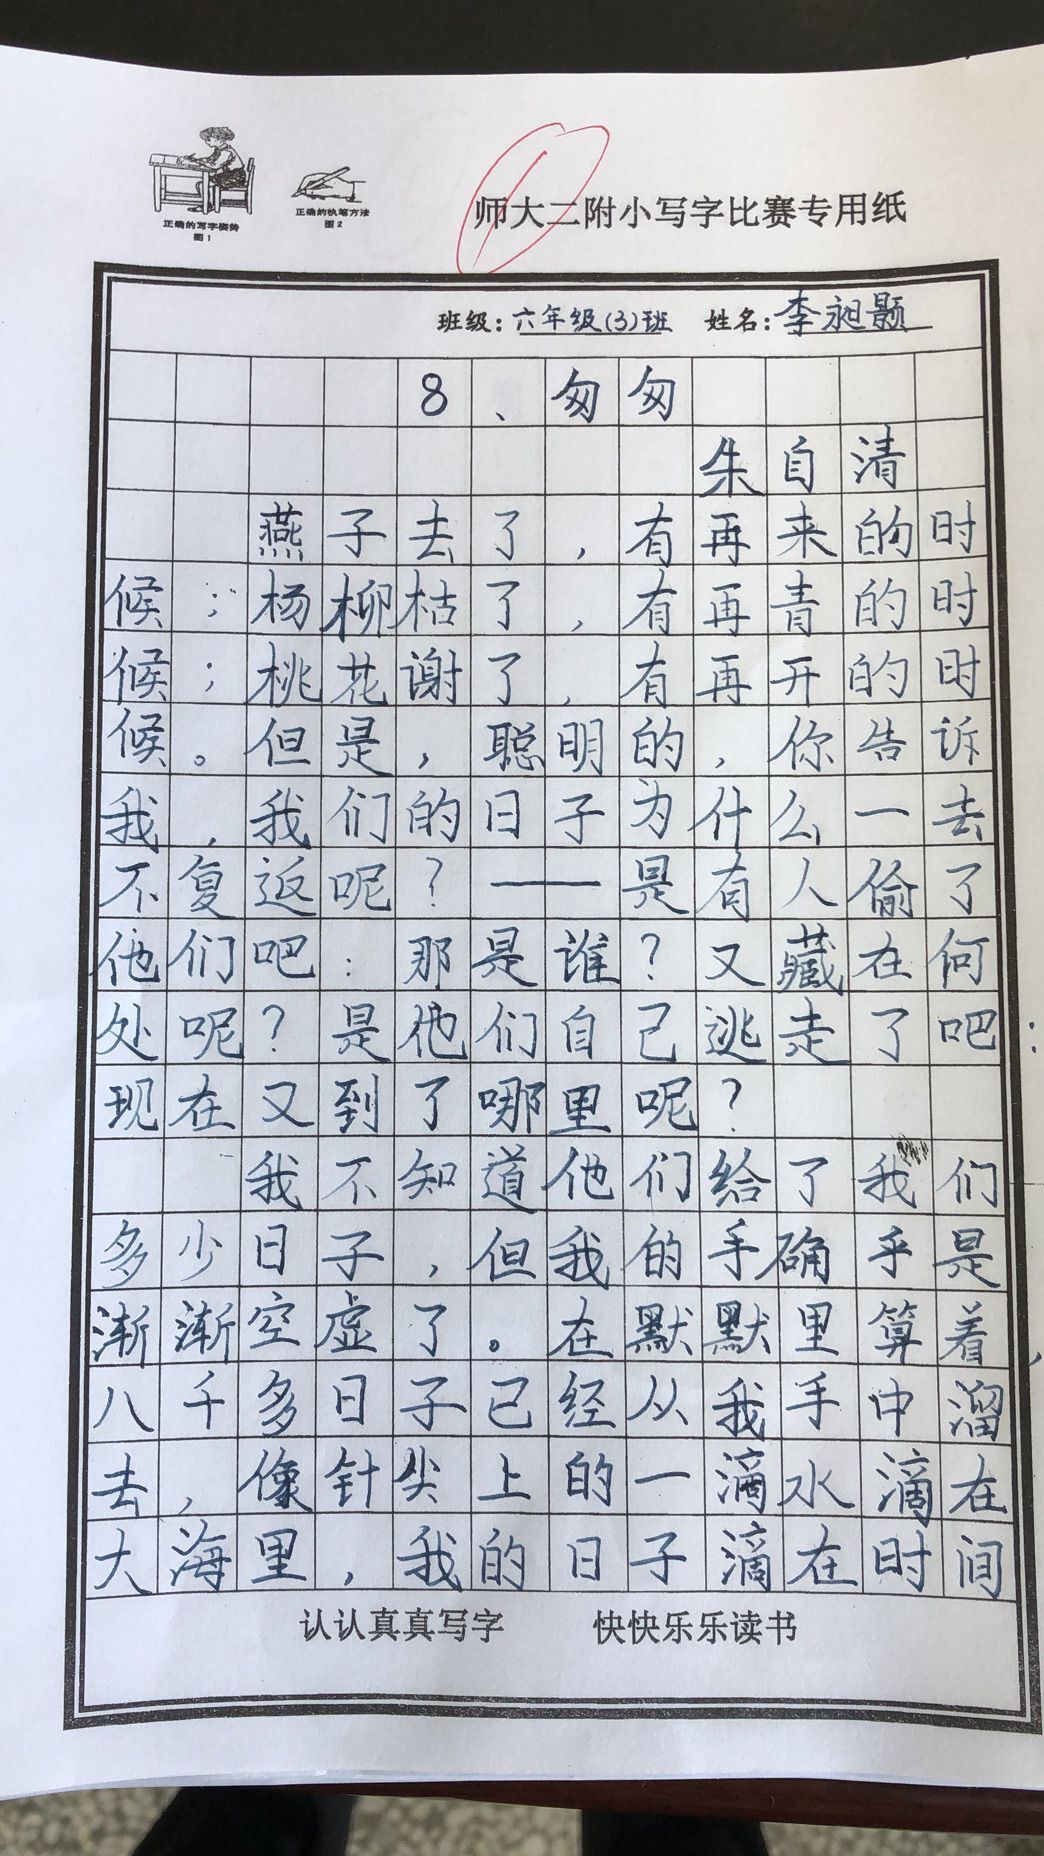 正确的写字姿势
图1
正确的执笔方法
图2
师大二附小写字比赛专用纸
班级：六年级(3)班 姓名：李昶颢
8、匆匆
朱自清
燕子去了，有再来的时
候；杨柳枯了，有再青的时
候；桃花谢了，有再开的时
候。但是，聪明的，你告诉
我，我们的日子为什么一去
不复返呢？——是有人偷了
他们吧：那是谁？又藏在何
处呢？是他们自己逃走了吧：
现在又到了哪里呢？
我不知道他们给了我们
多少日子，但我的手确乎是
渐渐空虚了。在默默里算着，
八千多日子已经从我手中溜
去，像针尖上的一滴水滴在
大海里，我的日子滴在时间
认认真真写字 快快乐乐读书